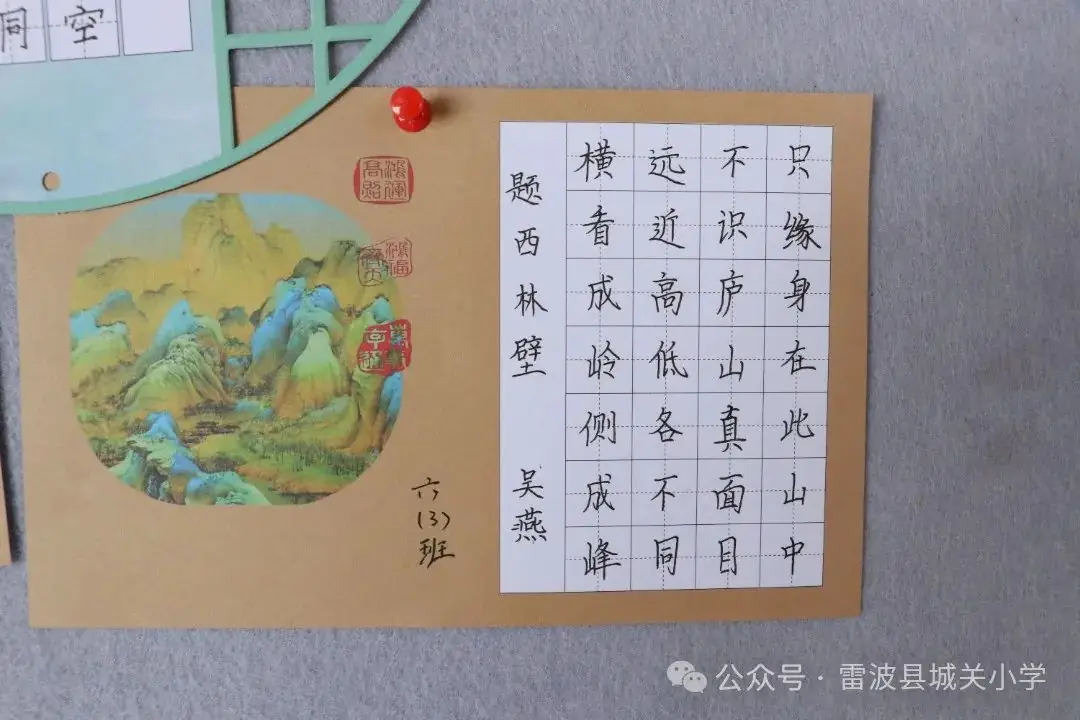 洞空
题西林壁 吴燕
横看成岭侧成峰
远近高低各不同
不识庐山真面目
只缘身在此山中
六(3)班
鸿运高照
公众号·雷波县城关小学